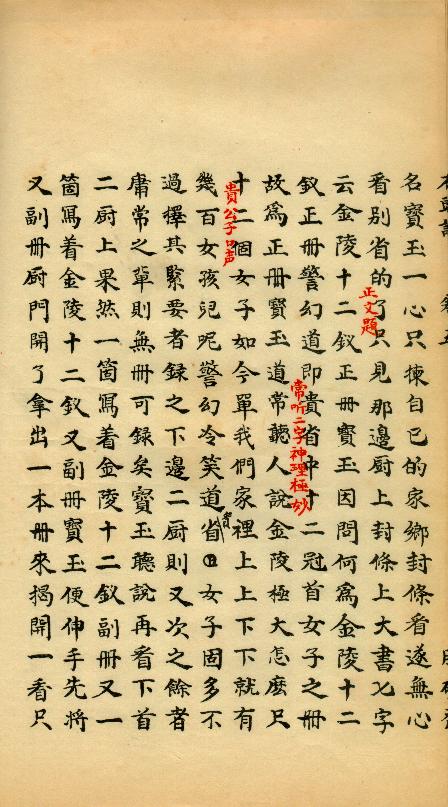 名寶玉一心只揀自己的家鄉封條看遂無心
看别省的了只見那邊厨上封條上大書七字
正文題
云金陵十二釵正冊寶玉因問何爲金陵十二
釵正冊警幻道即貴省中十二冠首女子之冊
常听二字神理極妙
故爲正冊寶玉道常聽人說金陵極大怎麽只
十二個女子如今單我們家裡上上下下就有
貴公子口声
幾百女孩兒呢警幻冷笑道貴省女子固多不
過擇其緊要者録之下邊二厨則又次之餘者
庸常之輩則無冊可録矣寶玉聽說再看下首
二厨上果然一箇寫着金陵十二釵副冊又一
箇寫着金陵十二釵又副冊寶玉便伸手先將
又副冊厨門開了拿出一本冊來揭開一看只